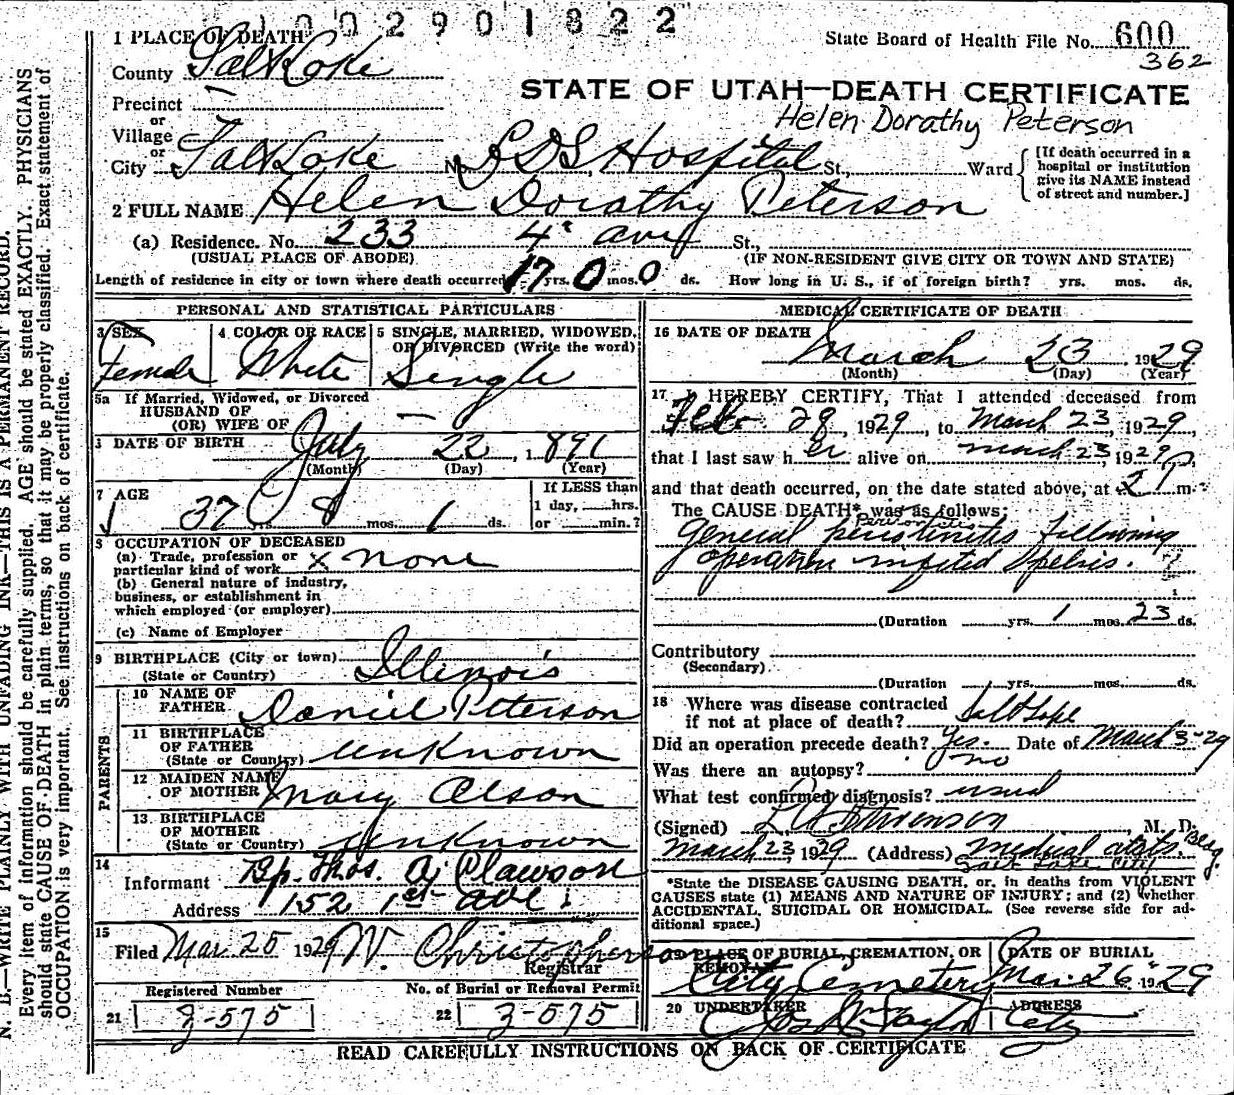 1002901822
1 PLACE OF DEATH
State Board of Health File No. 600
362
County Salt Lake
STATE OF UTAH—DEATH CERTIFICATE
Precinct —
Helen Dorathy Peterson
or
Village
or
City Salt Lake No. LDS Hospital St., Ward
[If death occurred in a hospital or institution give its NAME instead of street and number.]
2 FULL NAME Helen Dorathy Peterson
(a) Residence. No. 233 4" ave St.,
(USUAL PLACE OF ABODE) (IF NON-RESIDENT GIVE CITY OR TOWN AND STATE)
Length of residence in city or town where death occurred 17 yrs. 0 mos. 0 ds. How long in U. S., if of foreign birth? yrs. mos. ds.
PERSONAL AND STATISTICAL PARTICULARS
3 SEX 4 COLOR OR RACE 5 SINGLE, MARRIED, WIDOWED, OR DIVORCED (Write the word)
Female White Single
5a If Married, Widowed, or Divorced
HUSBAND OF
(OR) WIFE OF —
DATE OF BIRTH July 22, 1891
(Month) (Day) (Year)
7 AGE If LESS than
37 yrs. 8 mos. 1 ds. 1 day, hrs.
or min.?
8 OCCUPATION OF DECEASED
(a) Trade, profession or
particular kind of work x none
(b) General nature of industry,
business, or establishment in
which employed (or employer)
(c) Name of Employer
9 BIRTHPLACE (City or town)
(State or Country) Illinois
PARENTS
10 NAME OF
FATHER Daniel Peterson
11 BIRTHPLACE
OF FATHER
(State or Country) unknown
12 MAIDEN NAME
OF MOTHER Mary Olson
13 BIRTHPLACE
OF MOTHER
(State or Country) unknown
14
Informant Bp. Thos. A. Clawson
Address 152 1st ave.
15
Filed Mar. 25 1929 W. Christopherson
Registrar
Registered Number No. of Burial or Removal Permit
21 3-575 22 3-575
MEDICAL CERTIFICATE OF DEATH
16 DATE OF DEATH
March 23 1929
(Month) (Day) (Year)
17 I HEREBY CERTIFY, That I attended deceased from
Feb. 28, 1929, to March 23, 1929,
that I last saw her alive on March 23, 1929,
and that death occurred, on the date stated above, at m.
The CAUSE DEATH* was as follows:
Peritonitis
General following
operation pelvis.
(Duration yrs. 1 mos. 23 ds.
Contributory
(Secondary)
(Duration yrs. mos. ds.
18 Where was disease contracted
if not at place of death? Salt Lake
Did an operation precede death? Yes. Date of March 3-29
Was there an autopsy? no
What test confirmed diagnosis? usual
(Signed) Stevenson, M. D.
March 23, 1929 (Address) Medical arts. Bldg.
Salt Lake City
*State the DISEASE CAUSING DEATH, or, in deaths from VIOLENT
CAUSES state (1) MEANS AND NATURE OF INJURY; and (2) whether
ACCIDENTAL, SUICIDAL OR HOMICIDAL. (See reverse side for ad-
ditional space.)
19 PLACE OF BURIAL, CREMATION, OR REMOVAL DATE OF BURIAL
City Cemetery Mar. 26" 1929
20 UNDERTAKER ADDRESS
Taylor City
READ CAREFULLY INSTRUCTIONS ON BACK OF CERTIFICATE
N. B.—WRITE PLAINLY WITH UNFADING INK—THIS IS A PERMANENT RECORD.
Every item of information should be carefully supplied. AGE should be stated EXACTLY. PHYSICIANS
should state CAUSE OF DEATH in plain terms, so that it may be properly classified. Exact statement of
OCCUPATION is very important. See instructions on back of certificate.